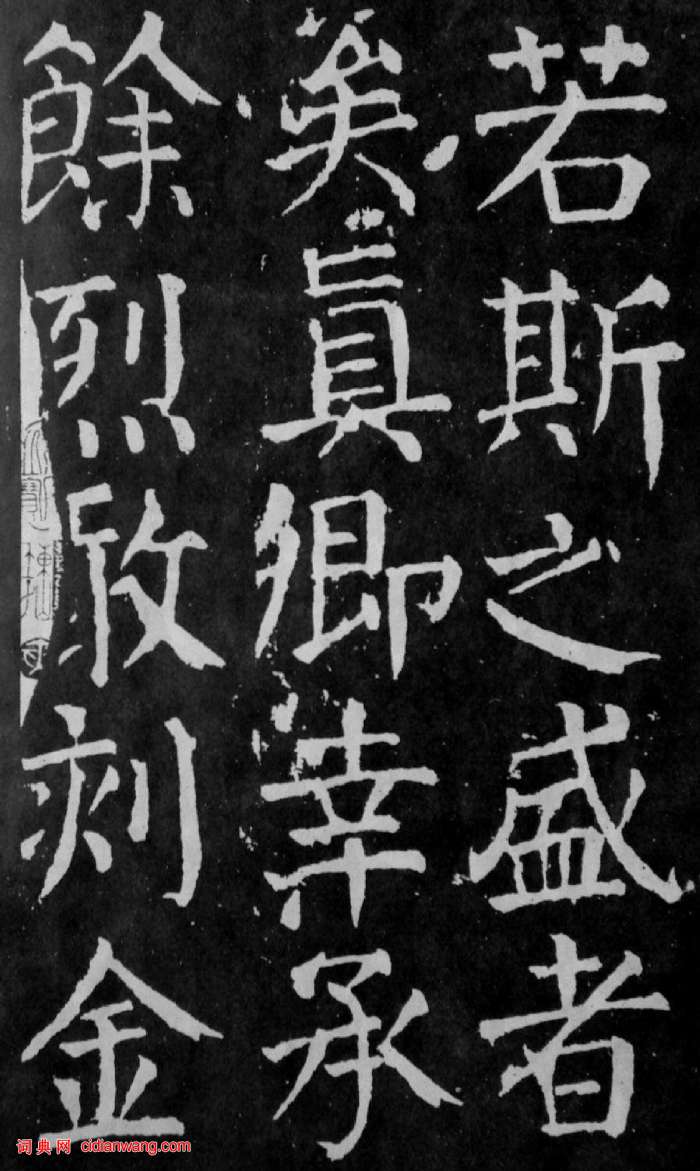 若斯之盛者
矣真卿幸承
餘烈敢刻金
词典网 cidianwang.com